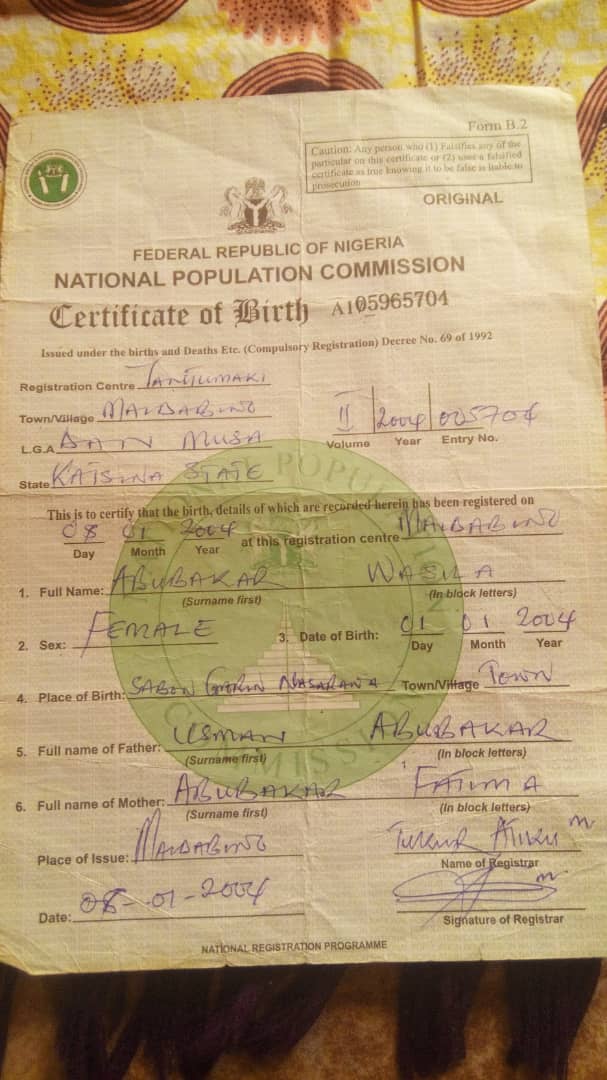 Form B.2
Caution: Any person who (1) Falsifies any of the
particular on this certificate or (2) uses a falsified
certificate as true knowing it to be false is liable to
prosecution
ORIGINAL
FEDERAL REPUBLIC OF NIGERIA
NATIONAL POPULATION COMMISSION
Certificate of Birth A105965704
Issued under the births and Deaths Etc. (Compulsory Registration) Decree No. 69 of 1992
Registration Centre TANTUMAKI
Town/Village MAIDABINO
II 2004 005704
L.G.A DAN MUSA
Volume Year Entry No.
State KATSINA STATE
This is to certify that the birth, details of which are recorded herein has been registered on
08 01 2004 at this registration centre MAIDABINO
Day Month Year
1. Full Name: ABUBAKAR WASILA
(Surname first) (In block letters)
2. Sex: FEMALE 3. Date of Birth: 01 01 2004
Day Month Year
4. Place of Birth: SABON GARIN NASARAWA Town/Village TOWN
5. Full name of Father: USMAN ABUBAKAR
(Surname first) (In block letters)
6. Full name of Mother: ABUBAKAR FATIMA
(Surname first) (In block letters)
Place of Issue: MAIDABINO TUKUR ATIKU
Name of Registrar
Date: 08-01-2004
Signature of Registrar
NATIONAL REGISTRATION PROGRAMME